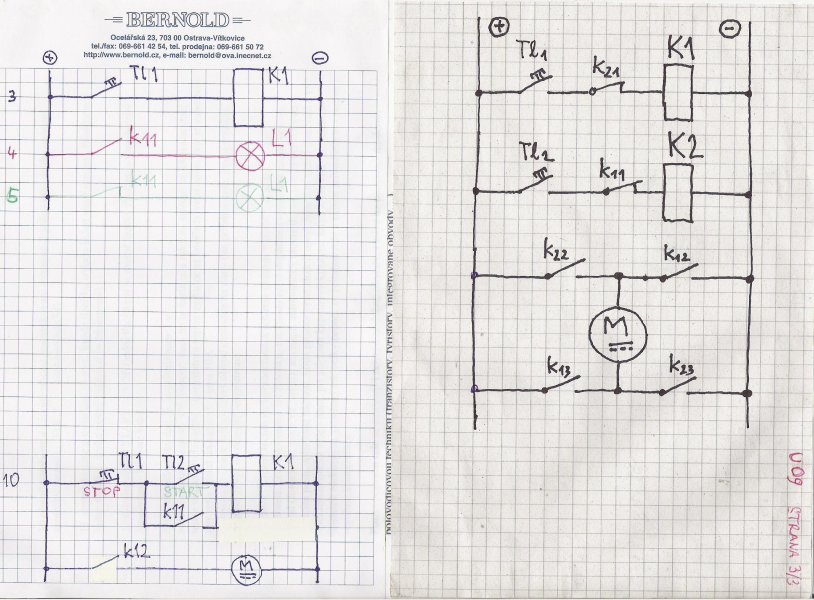 BERNOLD
Ocelářská 23, 703 00 Ostrava-Vítkovice
tel./fax: 069-661 42 54, tel. prodejna: 069-661 50 72
http://www.bernold.cz, e-mail: bernold@ova.inecnet.cz
+ −
3 Tl1 K1
4 k11 L1
5 k11 L1
10 Tl1 Tl2 K1
STOP START
k11
k12
M
polovodičovou techniku (tranzistory, tyristory, integrované obvody
+ −
Tl1 k21 K1
Tl2 k11 K2
k22 k12
M
k13 k23
U09 STRANA 3/3